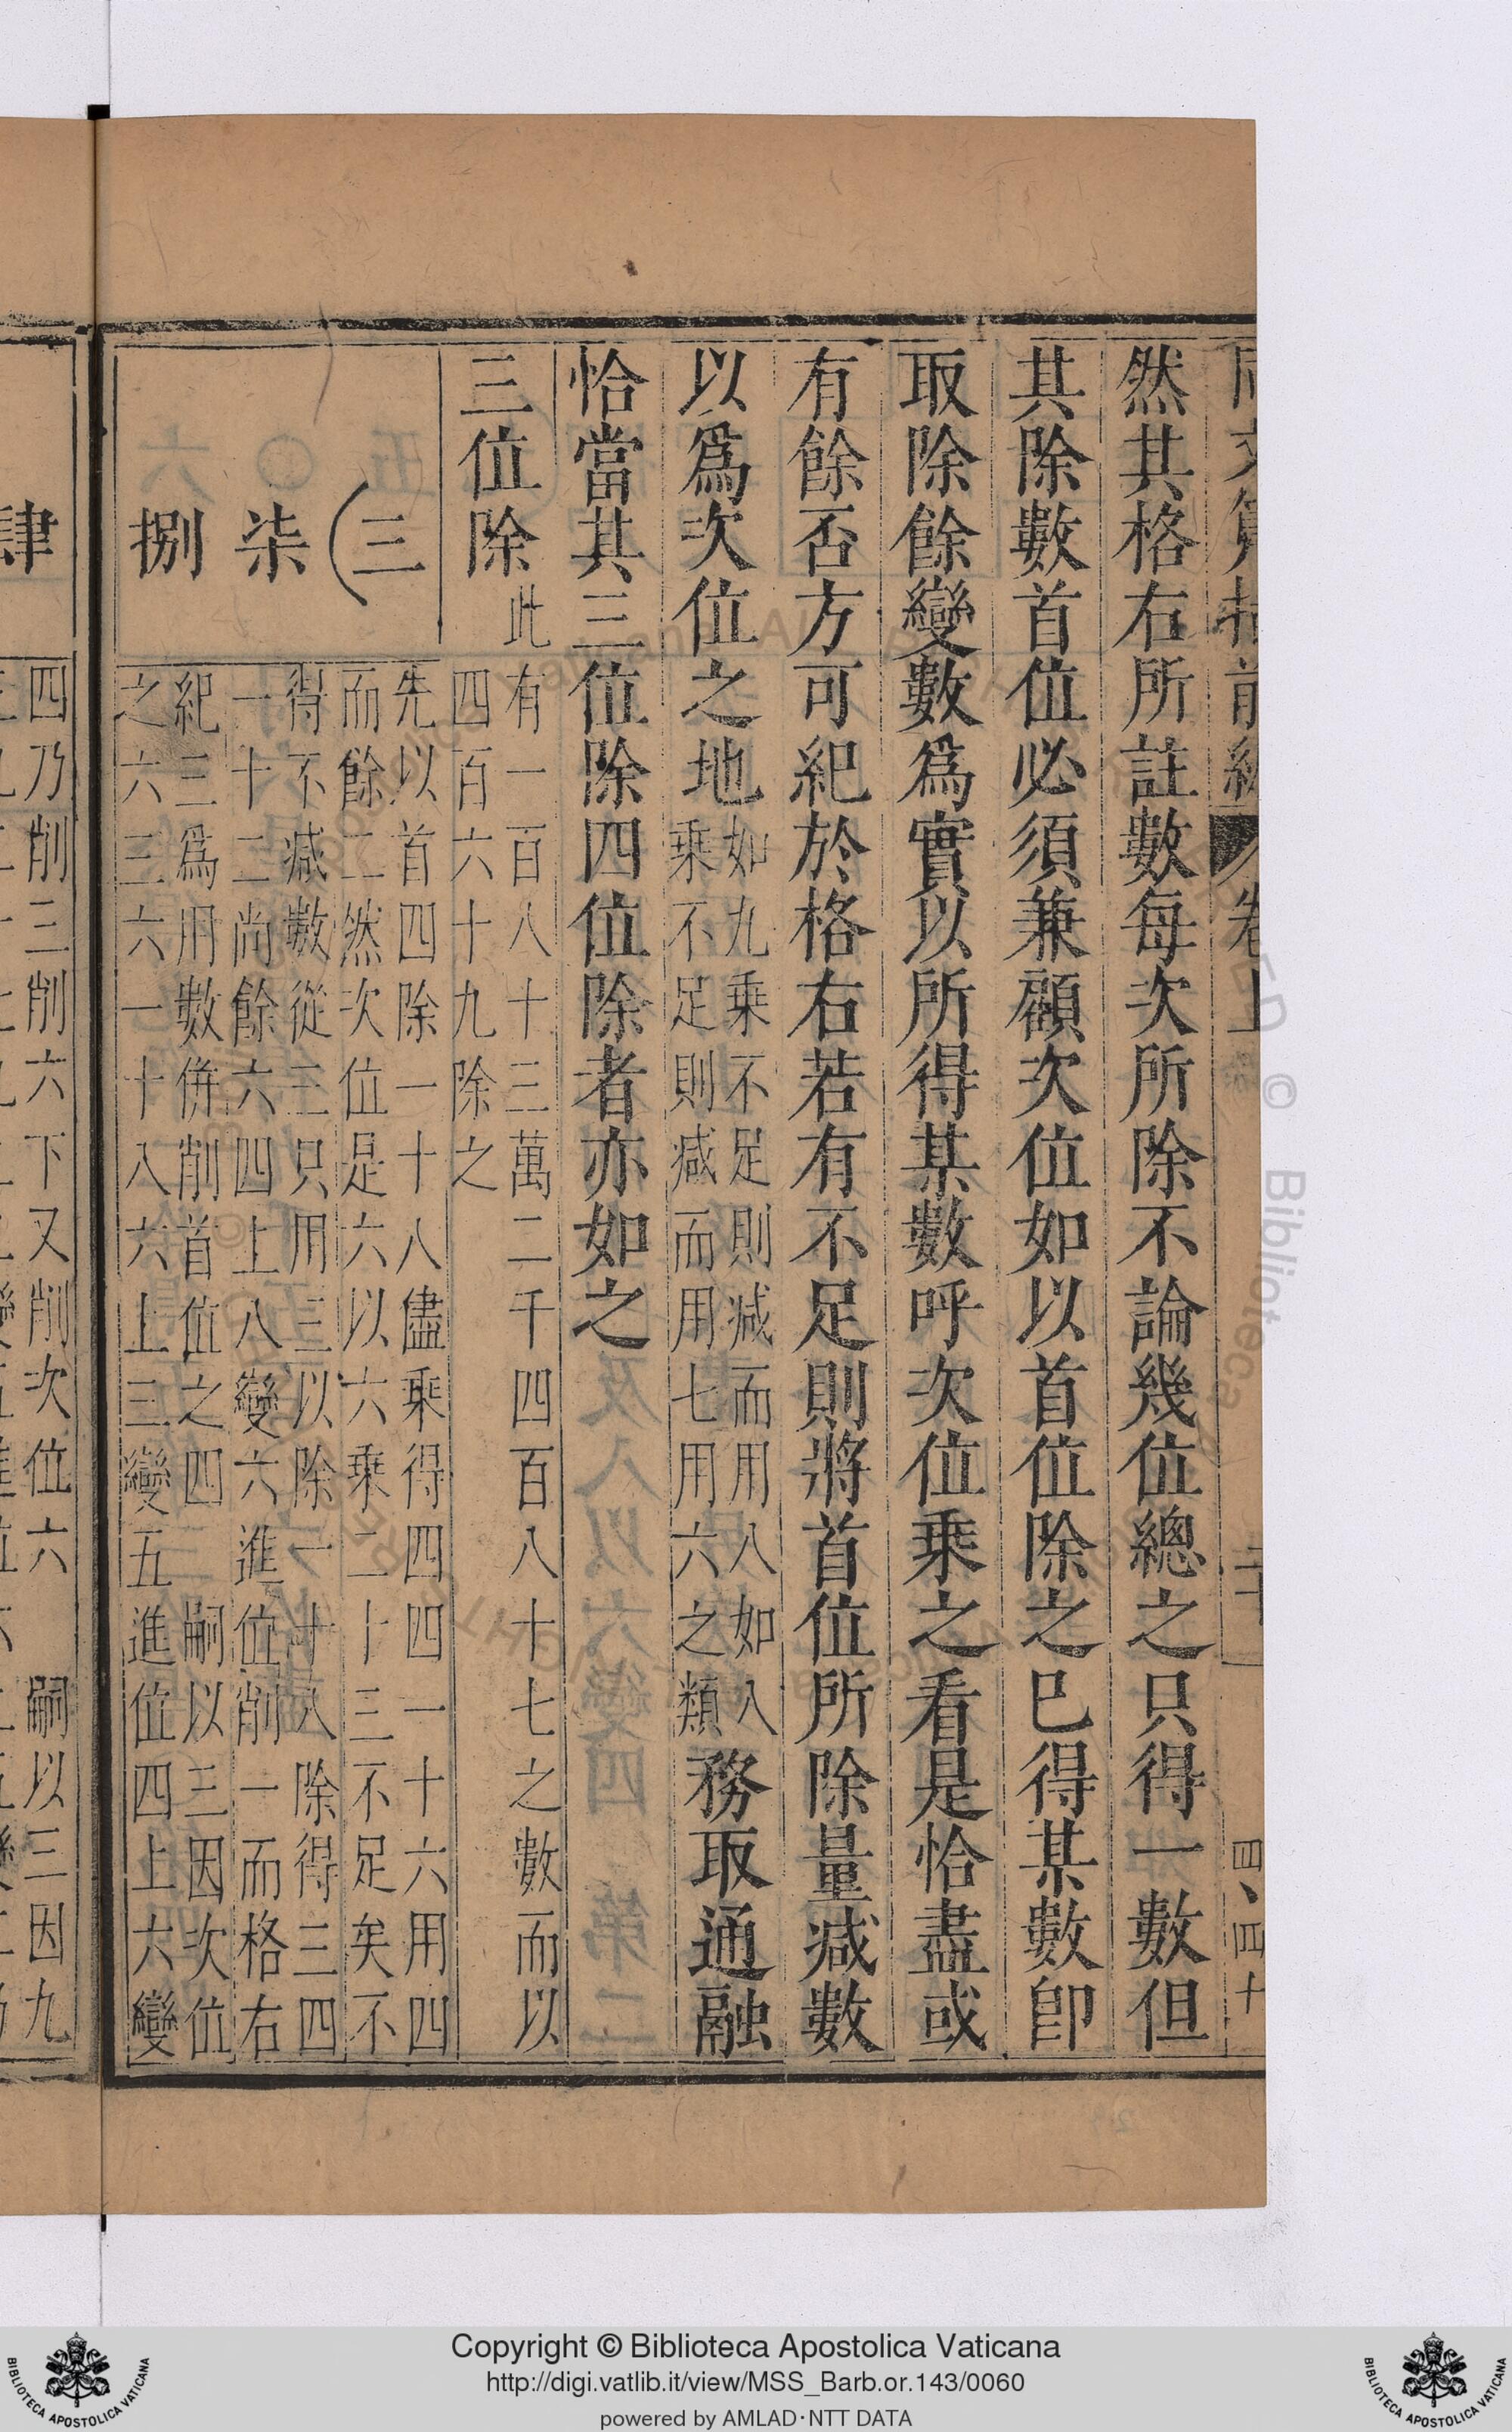 然其格右所註數每次所除不論幾位總之只得一數但
其除數首位必須兼顧次位如以首位除之已得某數卽
取除餘變數爲實以所得某數呼次位乘之看是恰盡或
有餘否方可紀於格右若有不足則將首位所除量减數
以爲次位之地如九乘不足則减而用八如八
乘不足則减而用七用六之類務取通融
恰當其三位除四位除者亦如之
三位除此有一百八十三萬二千四百八十七之數而以
四百六十九除之
三
柒
捌
先以首四除一十八儘乘得四四一十六用四
而餘二然次位是六以六乘二十三不足矣不
得不减數從三只用三以除一十八除得三四
一十二尚餘六四上八變六進位削一而格右
紀三爲用數併削首位之四嗣以三因次位
之六三六一十八六上三變五進位四上六變
四乃削三削六下又削次位六嗣以三因九
肆
卷上
四、四十
Copyright © Biblioteca Apostolica Vaticana
http://digi.vatlib.it/view/MSS_Barb.or.143/0060
powered by AMLAD·NTT DATA
BIBLIOTECA APOSTOLICA VATICANA
BIBLIOTECA APOSTOLICA VATICANA